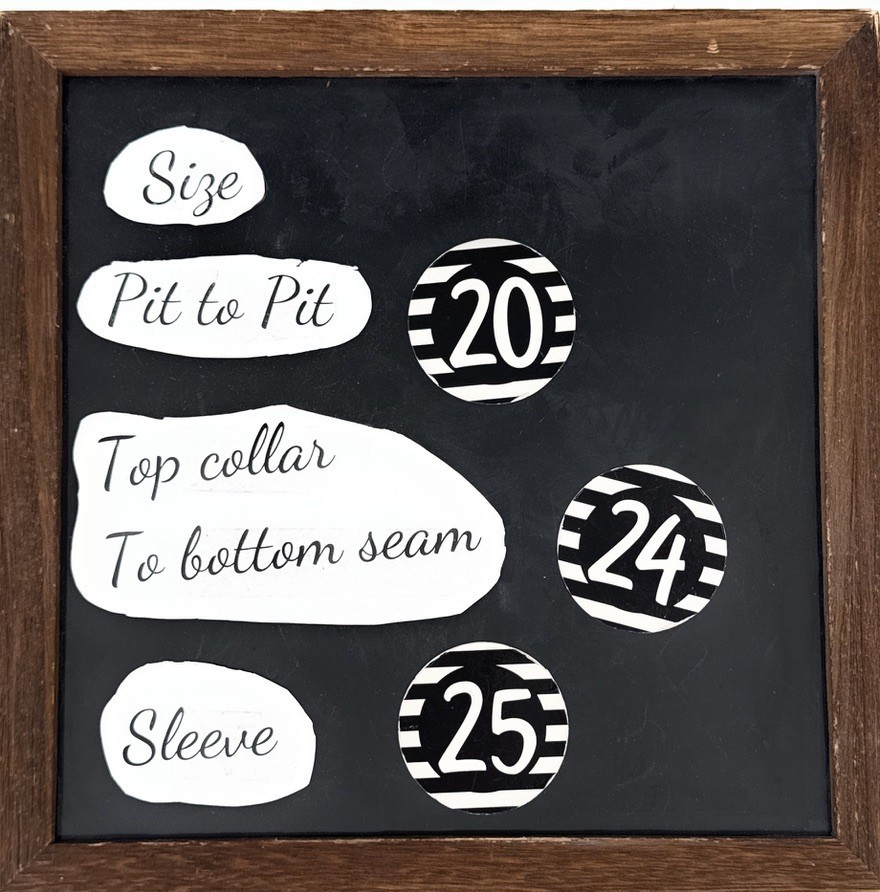 Size
Pit to Pit 20
Top collar
To bottom seam 24
Sleeve 25